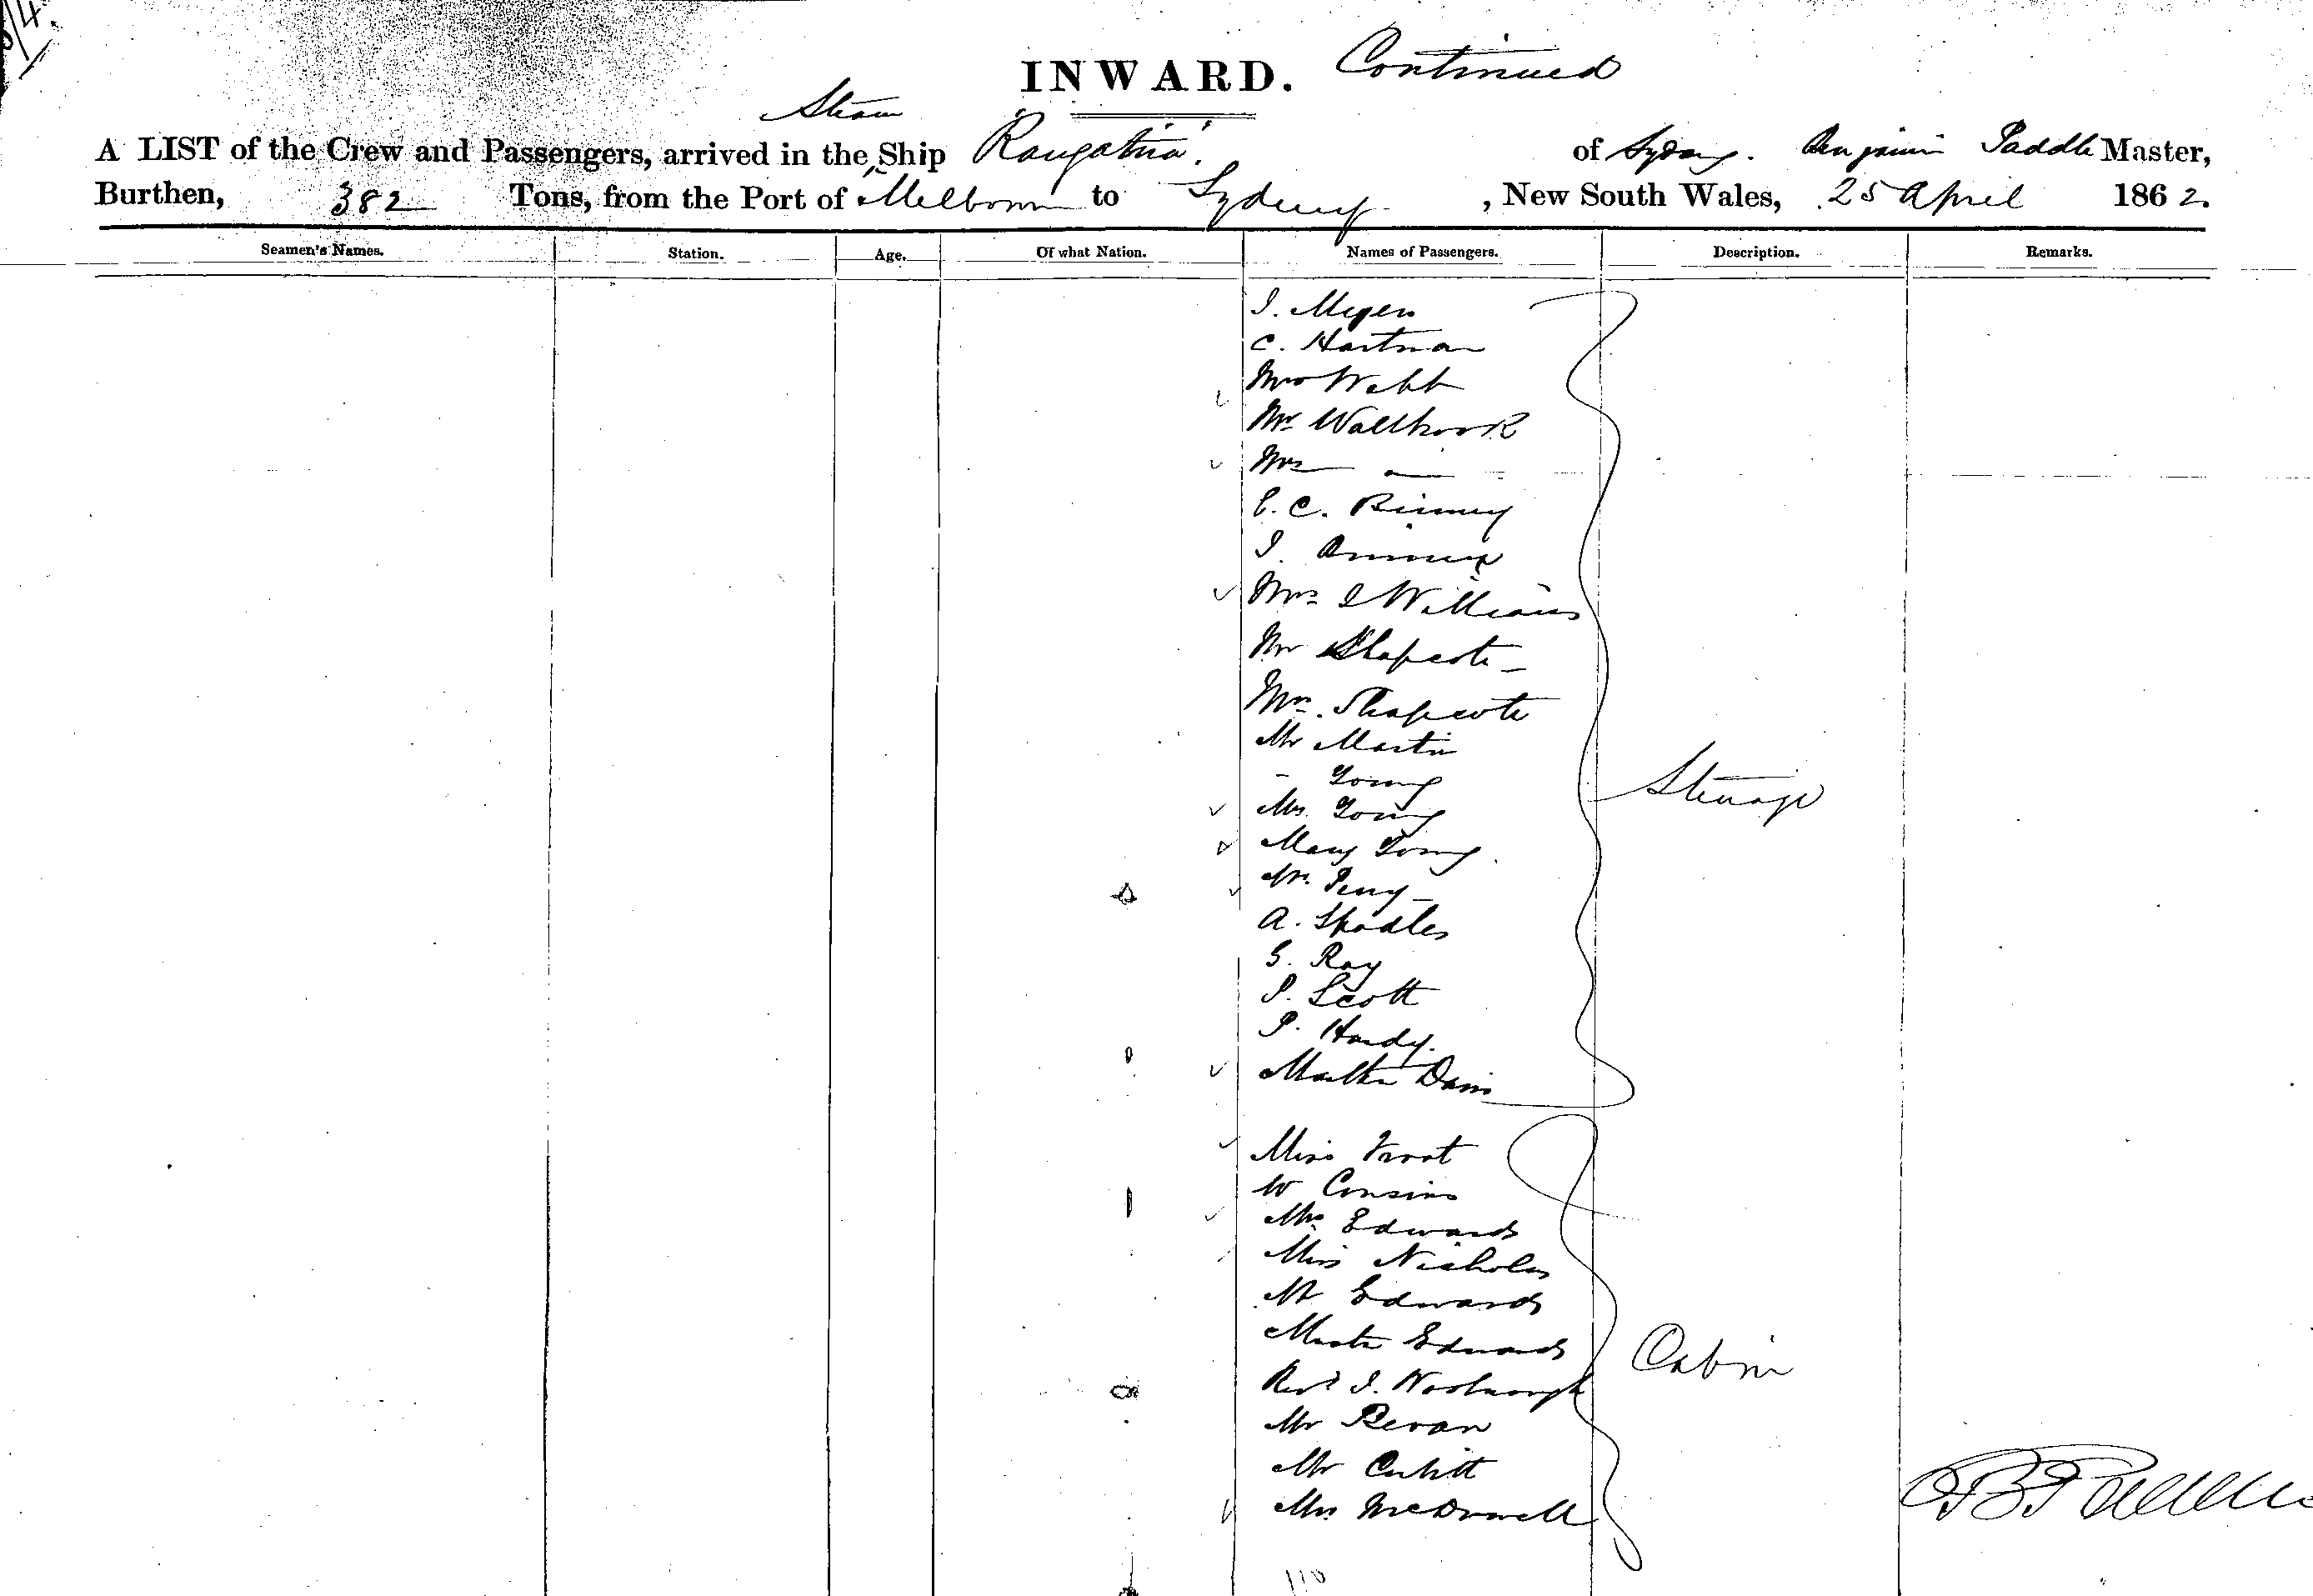 INWARD. Continued
Steam
A LIST of the Crew and Passengers, arrived in the Ship Rangatira. of Sydney. Benjamin Paddle Master,
Burthen, 382 Tons, from the Port of Melbourne to Sydney , New South Wales, 25 April 1862.
Seamen's Names. Station. Age. Of what Nation. Names of Passengers. Description. Remarks.
I. Meyer
C. Hartman
Mrs Webb
Mr Wallbrook
Mrs —
E. C. Binney
I.
Mrs I Williams
Mr Shapcote
Mrs. Shapcote
Mr Martin
- Young
Steerage
Mrs Young
Mary Young.
Mrs Perry
A. Shadles
G. Ray
P. Scott
P. Hardy.
Martha Davis
Miss Frost
W Cousins
Mrs Edwards
Miss Nicholas
Mr Edwards
Master Edwards
Cabin
Revd I. Woolnough
Mr Bevan
Mr Cubitt
Mrs McDowell
110